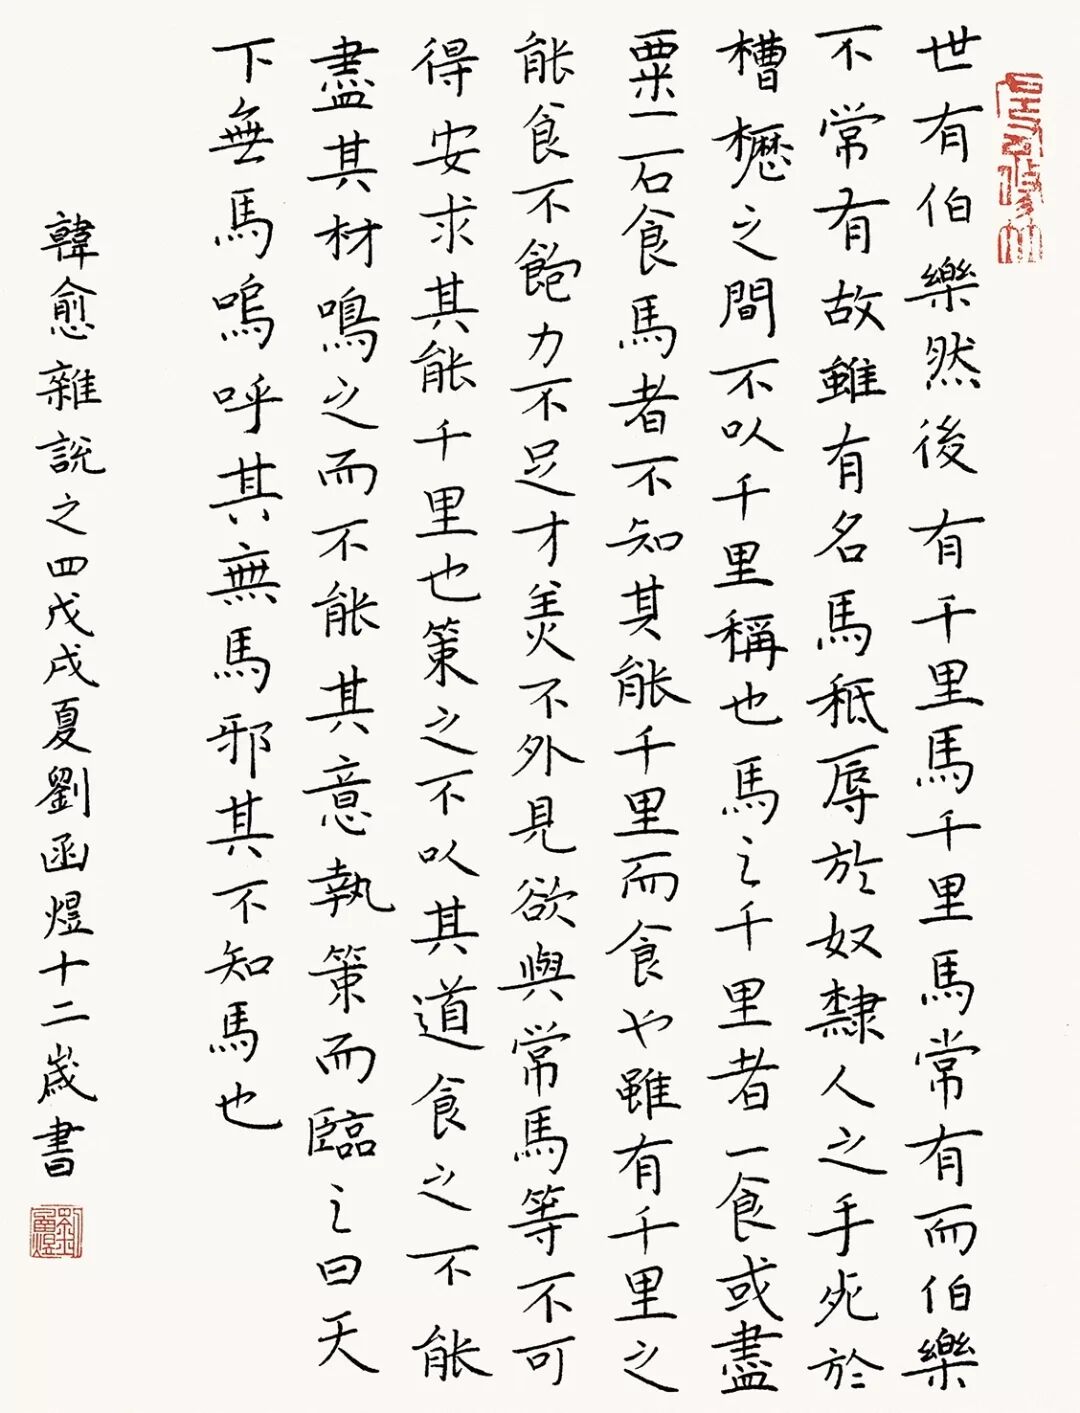 世有伯樂然後有千里馬千里馬常有而伯樂
不常有故雖有名馬秪辱於奴隸人之手死於
槽櫪之間不以千里稱也馬之千里者一食或盡
粟一石食馬者不知其能千里而食也雖有千里之
能食不飽力不足才美不外見欲與常馬等不可
得安求其能千里也策之不以其道食之不能
盡其材鳴之而不能其意執策而臨之曰天
下無馬嗚呼其無馬邪其不知馬也
韓愈雜說之四戊戌夏劉函煜十二歲書
劉函煜